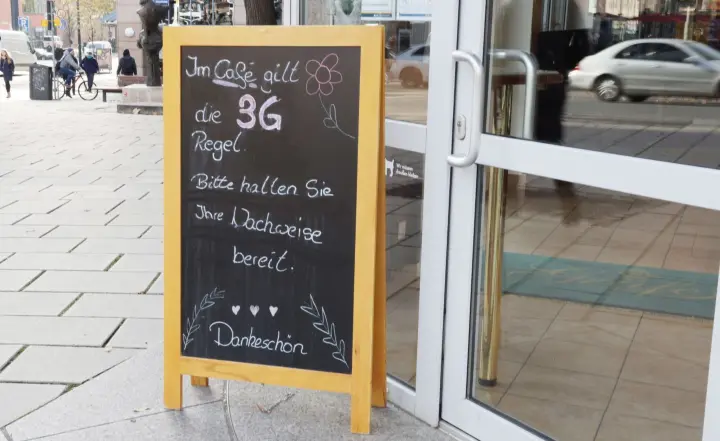 Im Café gilt
die 3G
Regel.
Bitte halten Sie
Ihre Nachweise
bereit.
Dankeschön